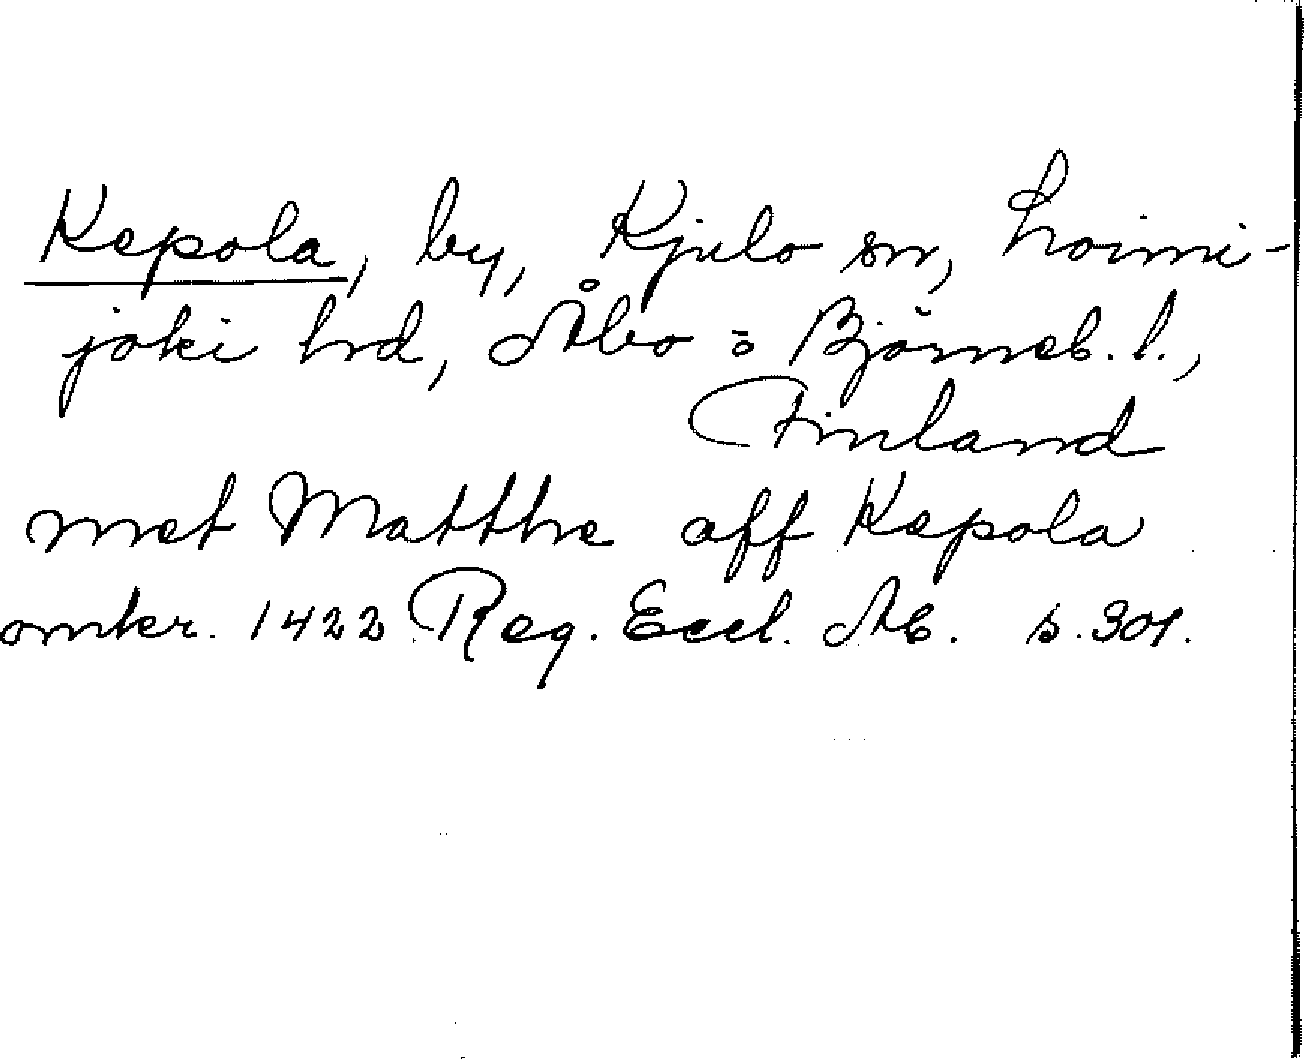 Kepola, by, Kjulo sn, Loimi-
joki hrd, Åbo = Björneb. l.,
Finland
met Matthe aff Kepola
omkr. 1422 Reg. Eccl. Ab. s. 301.